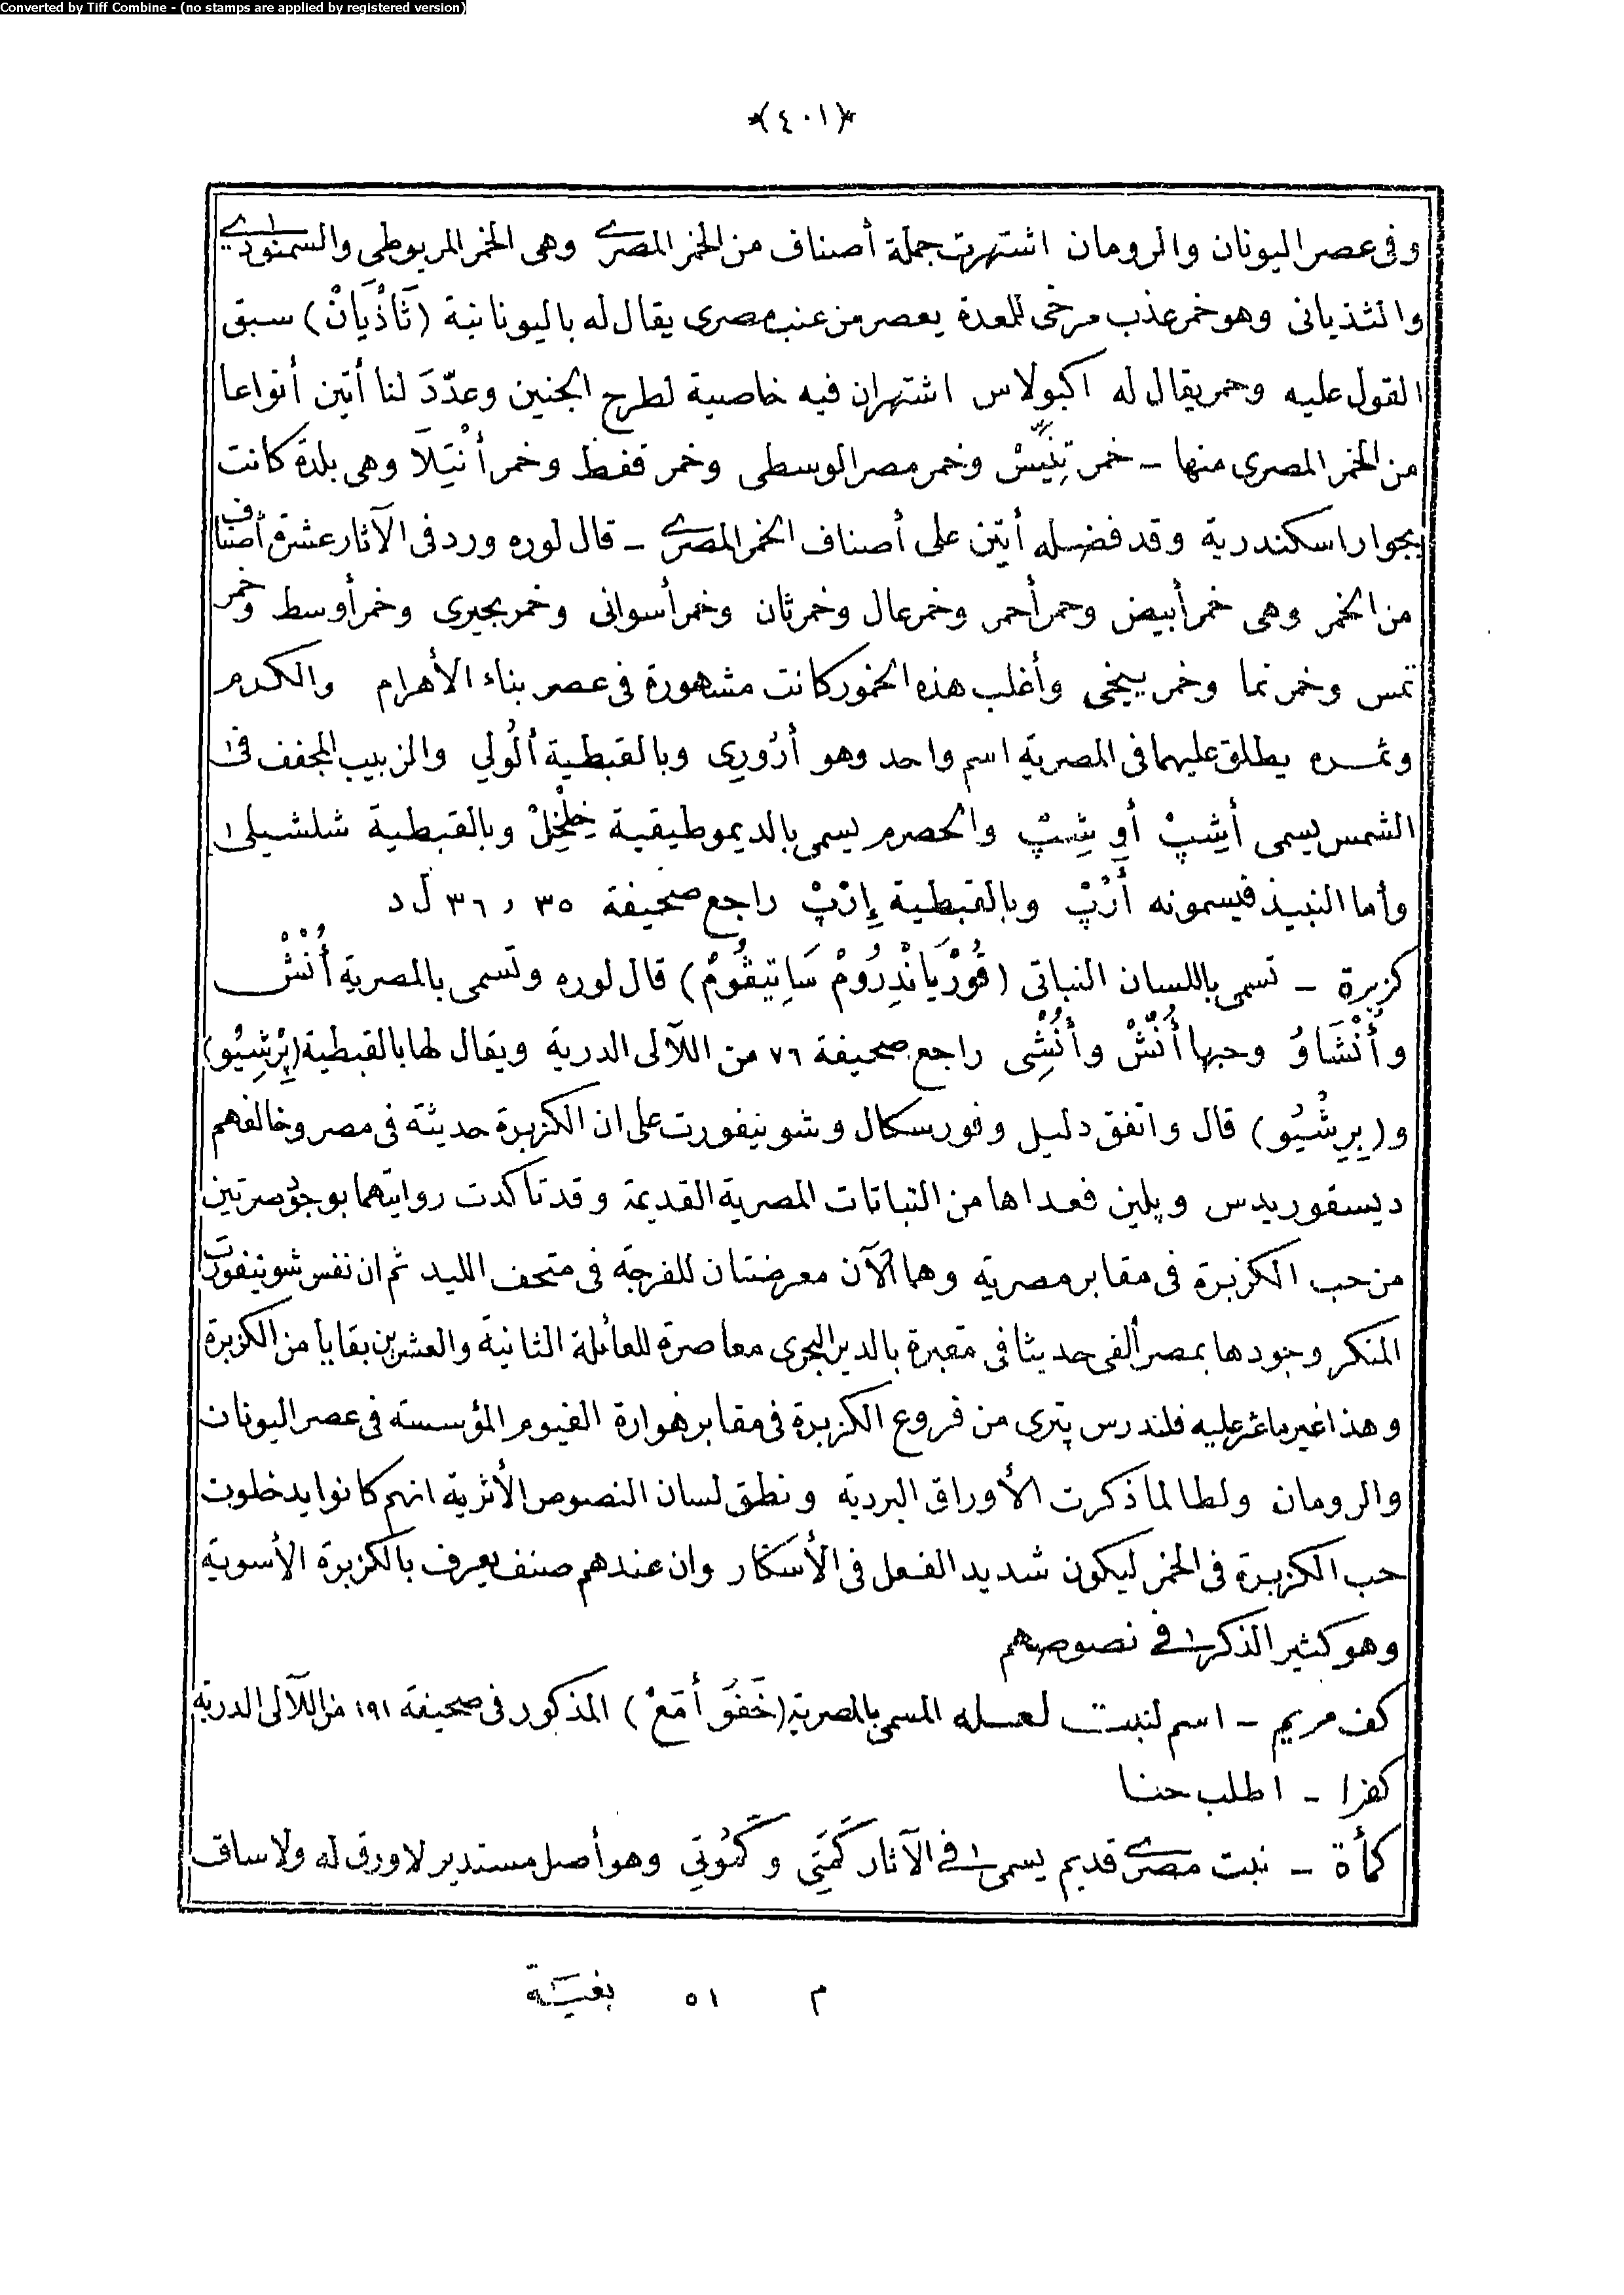 Converted by Tiff Combine - (no stamps are applied by registered version)
*(٤٠١)*
وفى عصر اليونان والرومان اشتهرت جملة أصناف من الخمر المصرى وهى الخمر المريوطى والسمنودى
والثذيانى وهو خمر عذب مرخى للمعدة يعصر من عنب مصرى يقال له باليونانية (ثَاذْيَانْ) سبق
القول عليه وخمر يقال له اكبولاس اشتهران فيه خاصية لطرح الجنين وعدّدَ لنا أتين أنواعا
من الخمر المصرى منها - خمر تِنِّيسْ وخمر مصر الوسطى وخمر قفط وخمر أنْتِيَلاَ وهى بلدة كانت
بجوار اسكندرية وقد فضله أتين على أصناف الخمر المصرى - قال لوره ورد فى الآثار عشرة أصناف
من الخمر وهى خمر أبيض وخمر أحمر وخمر عال وخمر ثان وخمر أسوانى وخمر بحيرى وخمر أوسط وخمر
تمس وخمر نما وخمر يبخى وأغلب هذه الخمور كانت مشهورة فى عصر بناء الأهرام والكرم
وثمره يطلق عليهما فى المصرية اسم واحد وهو أرُورِى وبالقبطية ألُولِي والزبيب المجفف فى
الشمس يسمى أَشِپْ أو شِپْ والحصرم يسمى بالديموطيقية خِلْخِلْ وبالقبطية شلشيلى
وأما النبيذ فيسمونه أَرْپْ وبالقبطية إِرْپْ راجع صحيفة ٣٥ و ٣٦ ل د
كزبرة - تسمى باللسان النباتى (قُورْيَانْدِرُومْ سَاتِيڤُومْ) قال لوره وتسمى بالمصرية أُنْشْ
وأُنْشَاوُ وحبها أُنْشْ وأُنْشِى راجع صحيفة ٧٦ من اللآلى الدرية ويقال لها بالقبطية (بِرْشِيُو)
و(بِرِشْيُو) قال واتفق دليل وفورسكال وشوينفورت على ان الكزبرة حديثة فى مصر وخالفهم
ديسقوريدس وپلين فعداها من النباتات المصرية القديمة وقد تأكدت روايتهما بوجود صرتين
من حب الكزبرة فى مقابر مصرية وهما الآن معرضتان للفرجة فى متحف الليد ثم ان نفس شوينفورت
المنكر وجودها بمصر ألفى حديثا فى مقبرة بالدير البحرى معاصرة للعائلة الثانية والعشرين بقايا من الكزبرة
وهذا غير ما عثر عليه فلندرس پترى من فروع الكزبرة فى مقابر هوارة الفيوم المؤسسة فى عصر اليونان
والرومان ولطالما ذكرت الأوراق البردية ونطق لسان النصوص الأثرية انهم كانوا يدخلون
حب الكزبرة فى الخمر ليكون شديد الفعل فى الأسكار وان عندهم صنف يعرف بالكزبرة الأسوية
وهو كثير الذكر فى نصوصهم
كف مريم - اسم لنبت لعله المسمى بالمصرية (خَفَوُ أمَعْ) المذكور فى صحيفة ١٩١ من اللآلى الدرية
كفرا - اطلب حنا
كمأة - نبت مصرى قديم يسمى فى الآثار كَمَتِي وكَمُوتِي وهو أصل مستدير لا ورق له ولا ساق
م ٥١ بغية